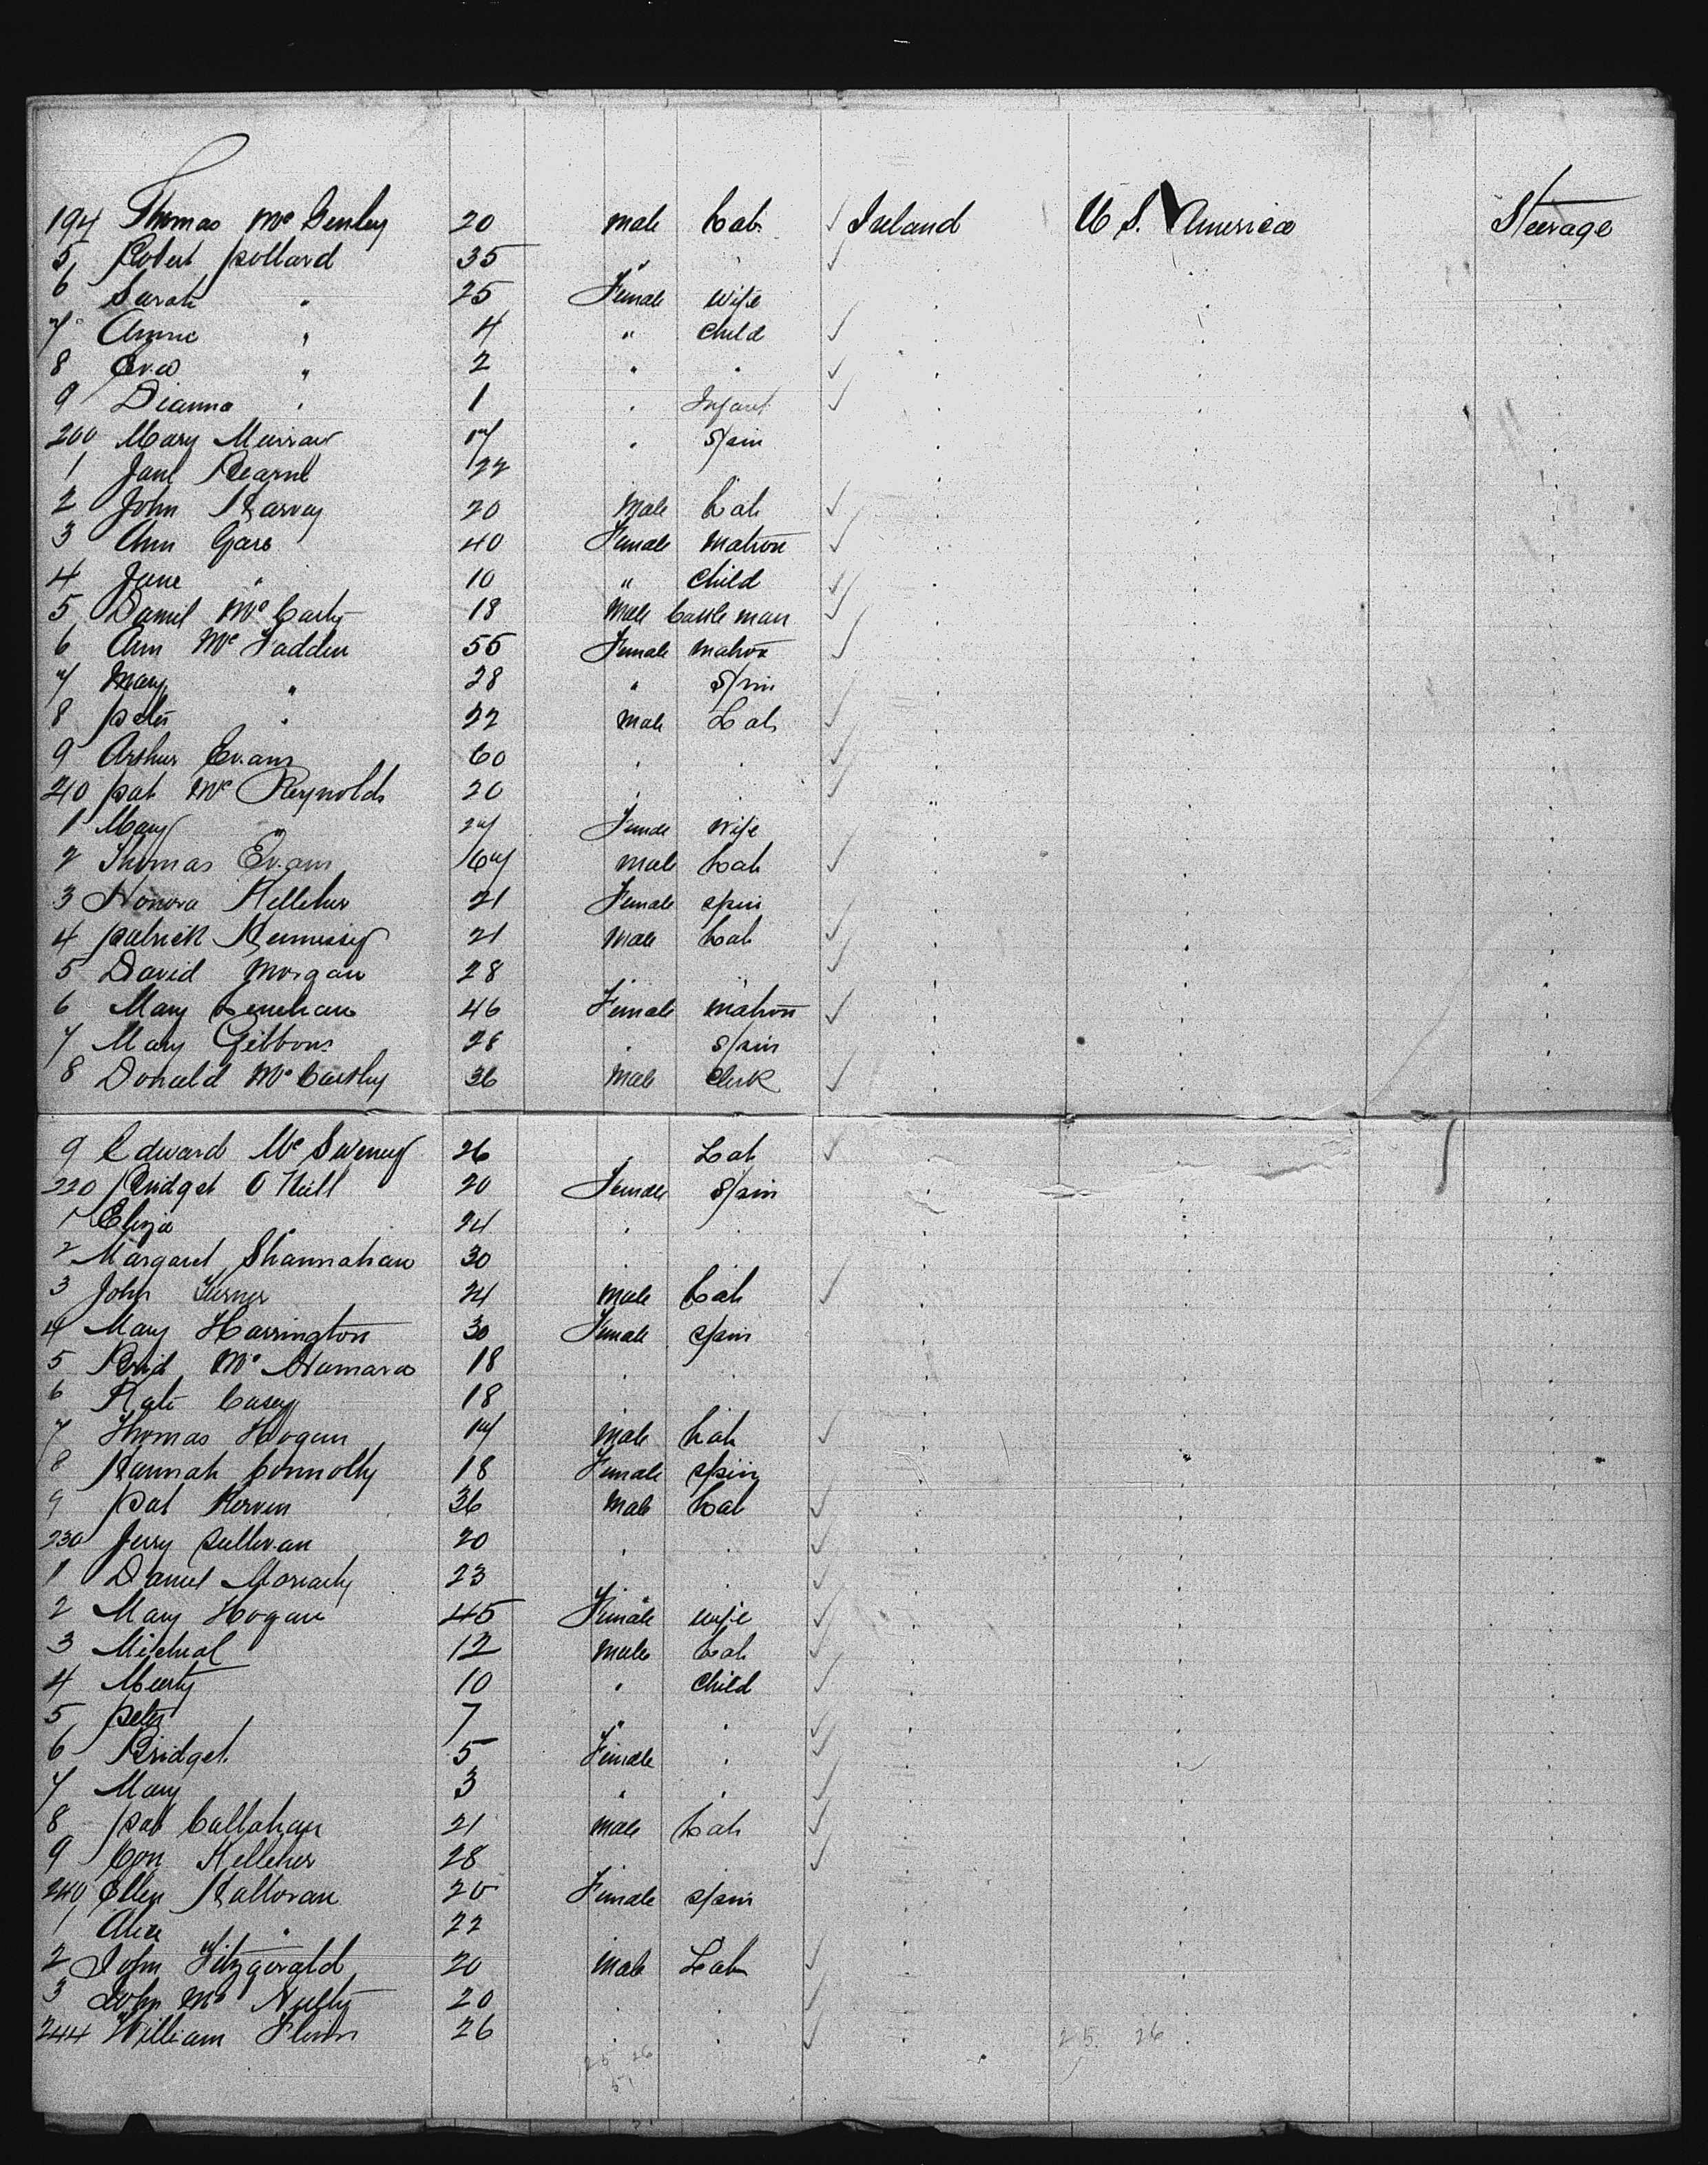 194 Thomas Mc Genley 20 male Lab. Ireland U S. America Steerage
5 Robert Pollard 35 "
6 Sarah " 25 Female wife
7 Annie " 4 " Child
8 Eva " 2 " "
9 Dianna " 1 " Infant
200 Mary Murray 17 " Spin
1 Jane Hearne 22
2 John Harvey 20 Male Lab
3 Ann Gars 40 Female Matron
4 Jane " 10 " Child
5 Daniel Mc Carty 18 Male Cattle man
6 Ann Mc Fadden 55 Female matron
7 Mary " 28 " Spin
8 Peter " 22 Male Lab
9 Arthur Evans 60 " "
210 Pat Mc Reynolds 20 " "
1 Mary " 27 Female Wife
2 Thomas Evans 67 male Lab
3 Honora Kelleher 21 Female Spin
4 Patrick Hennissy 21 Male Lab
5 David Morgan 28 " "
6 Mary Lenehan 46 Female Matron
7 Mary Gibbons 28 " Spin
8 Donald Mc Carthy 36 Male Clerk
9 Edward Mc Sweney 26 " Lab
220 Bridget O Neill 20 Female Spin
1 Eliza " 24 " "
2 Margaret Shannahan 30 "
3 John Turner 24 Male Lab
4 Mary Harrington 30 Female Spin
5 Brid Mc Namara 18 " "
6 Kate Casey 18
7 Thomas Hogan 17 Male Lab
8 Hannah Connolly 18 Female Spin
9 Pat Kerven 36 Male Lab
230 Jerry Sullivan 20 " "
1 Daniel Moriarty 23 "
2 Mary Hogan 45 Female wife
3 Micheal 12 Male Lab
4 Murty 10 " Child
5 Peter 7 " "
6 Bridget 5 Female "
7 Mary 3 " "
8 Pat Callahan 21 Male Lab
9 Con Kelleher 28
240 Ellen Halloran 20 Female Spin
1 Alice " 22
2 John Fitzgerald 20 Male Lab
3 John Mc Nulty 20 " "
244 William Flynn 26 " "
25 26 25 26